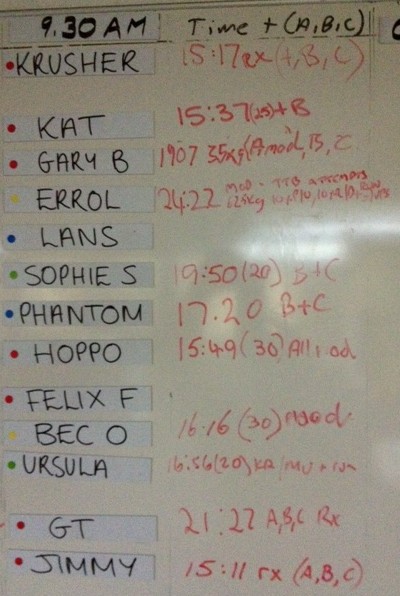 9.30 AM Time + (A,B,C)
KRUSHER 15:17 rx (+, B, C)
KAT 15:37 (25) + B
GARY B 1907 35kg (A mod, B, C
ERROL 24:22 MOD - TTB ATTEMPTS
LANS
SOPHIE S 19:50 (20) B+C
PHANTOM 17.20 B+C
HOPPO 15:49 (30) All mod
FELIX F
BEC O 16.16 (30) mod
URSULA 16:56 (20)
GT 21:22 A,B,C Rx
JIMMY 15:11 rx (A,B,C)